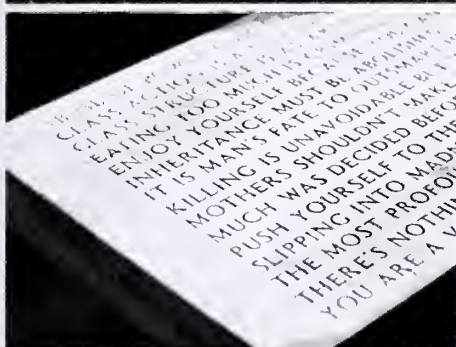 CLASS ACTION IS A
CLASS STRUCTURE IS
EATING TOO MUCH IS
ENJOY YOURSELF BECAUSE
INHERITANCE MUST BE ABOLISHED
IT IS MAN'S FATE TO OUTSMART
KILLING IS UNAVOIDABLE
MOTHERS SHOULDN'T MAKE
MUCH WAS DECIDED BEFO
PUSH YOURSELF TO THE
SLIPPING INTO MADN
THE MOST PROFO
THERE'S NOTHIN
YOU ARE A V